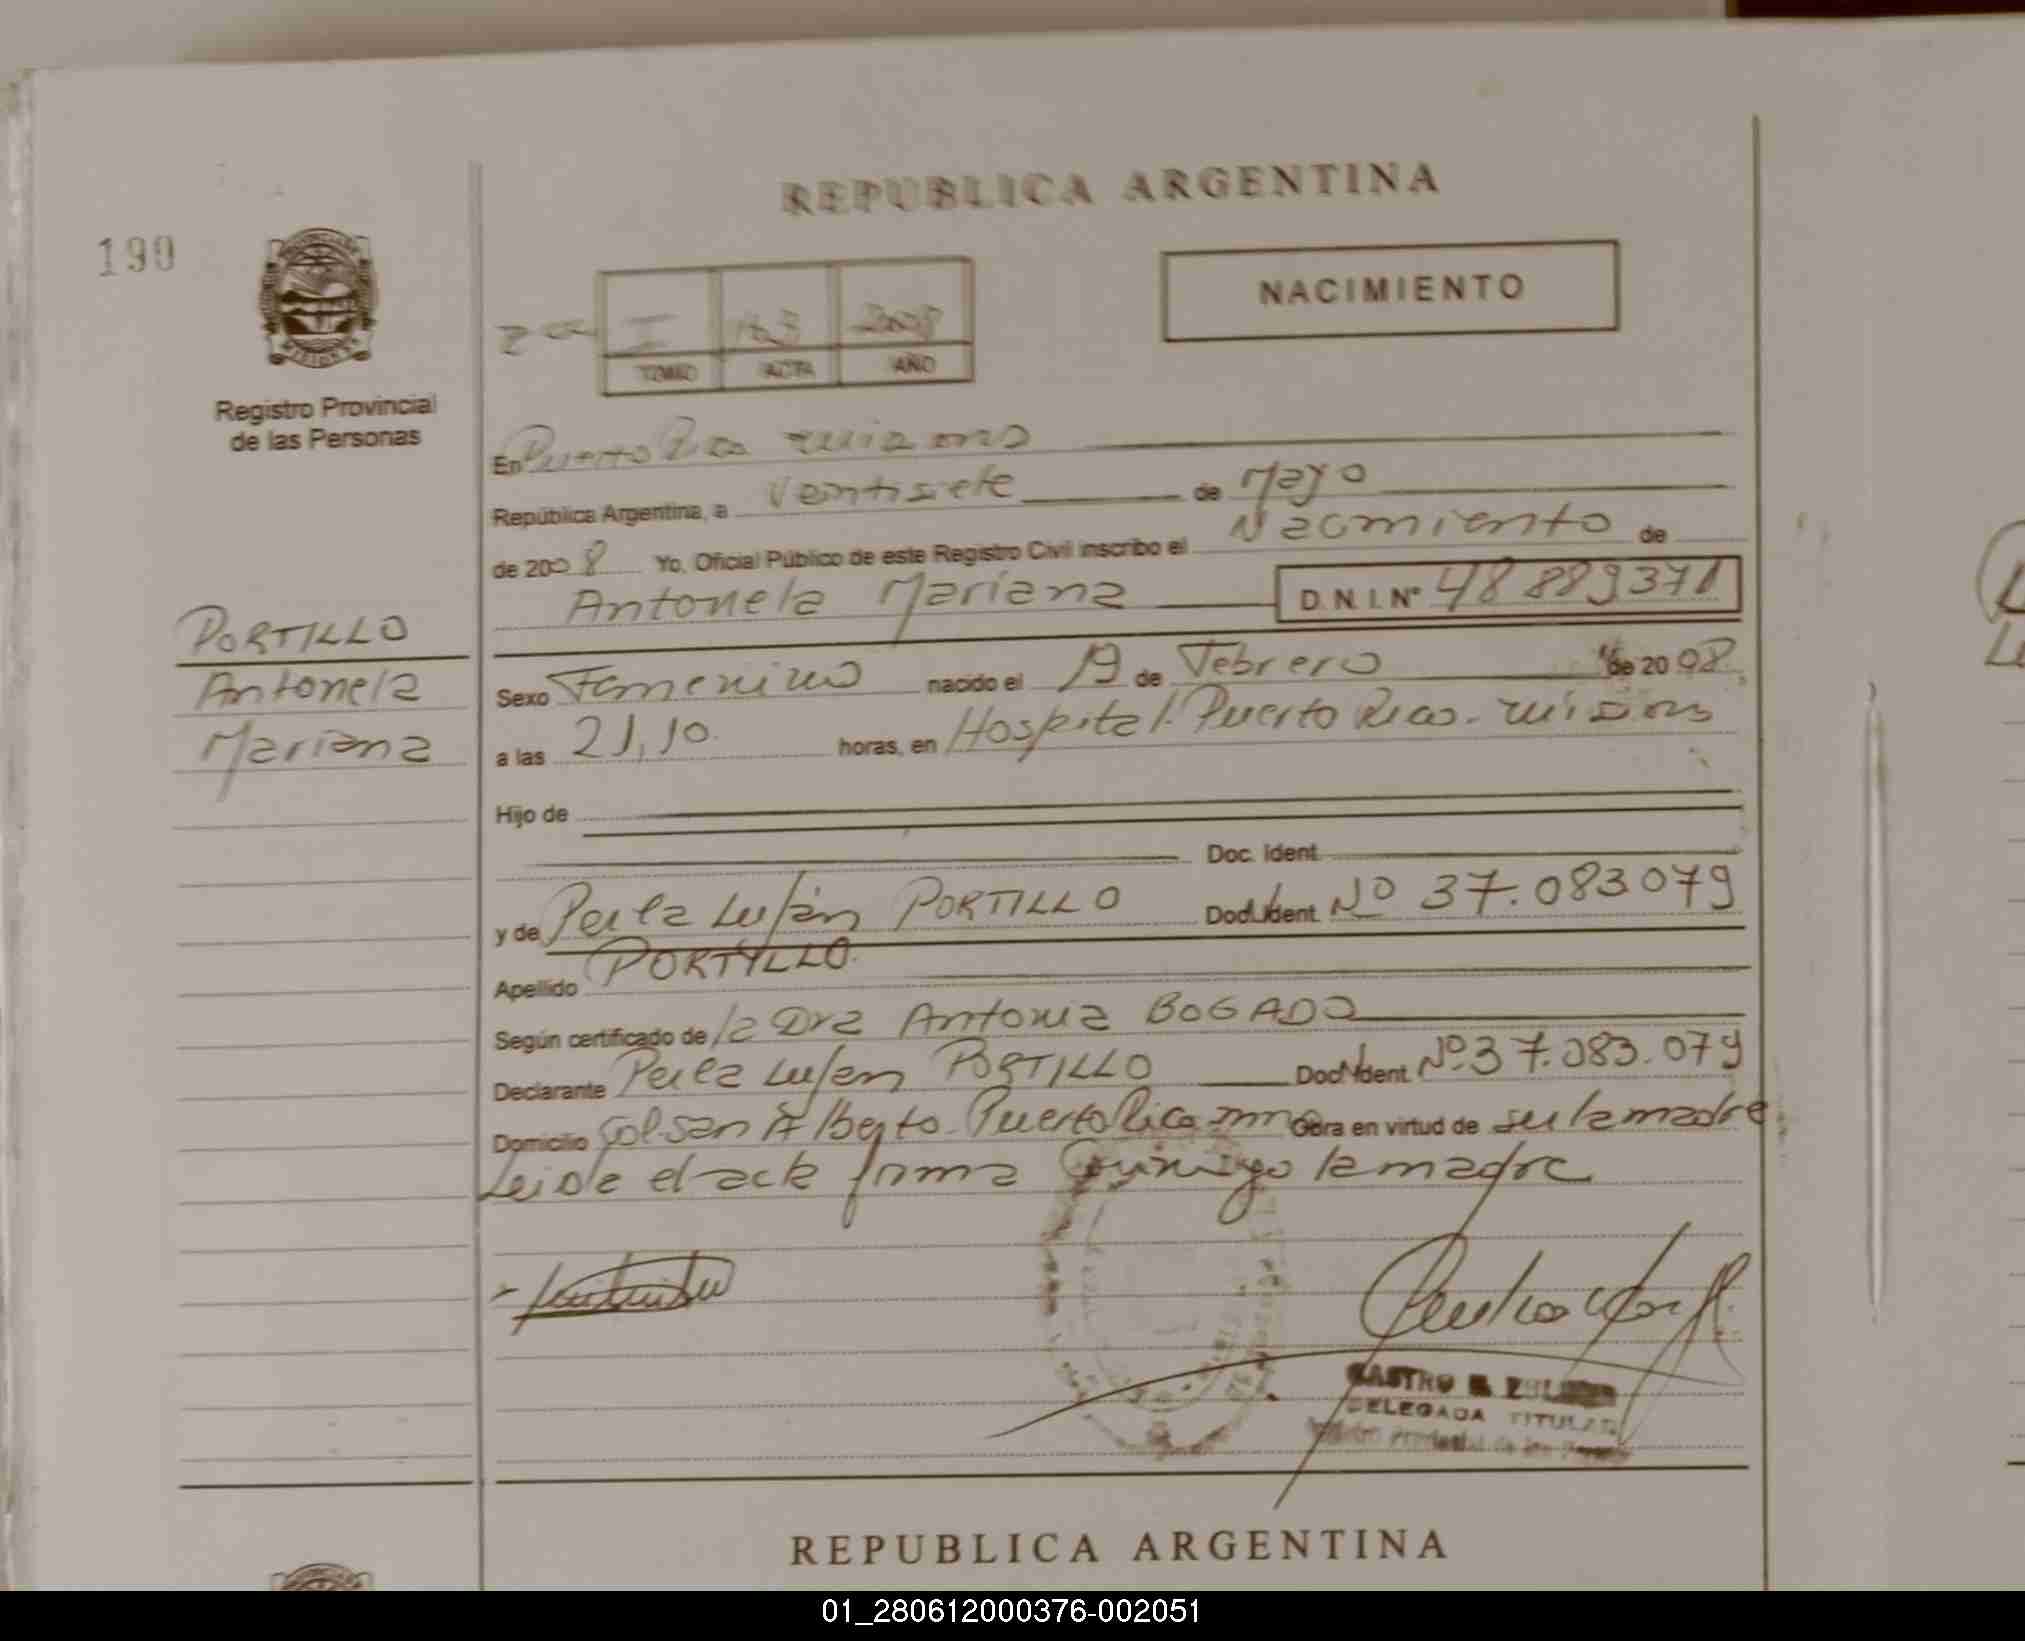 REPUBLICA ARGENTINA
190
NACIMIENTO
I 163 2008
TOMO ACTA AÑO
Registro Provincial
de las Personas
En Puerto Rico Misiones
República Argentina, a Veintisiete de Mayo
de 2008 Yo, Oficial Público de este Registro Civil inscribo el Nacimiento de
Antonela Mariana D.N.I.Nº 48889371
PORTILLO
Antonela
Mariana
Sexo Femenino nacido el 19 de Febrero de 2008
a las 21,10 horas, en Hospital. Puerto Rico. Misiones
Hijo de
Doc. Ident.
y de Perla Luján PORTILLO Doc. Ident. Nº 37.083079
Apellido PORTILLO.
Según certificado de la Dra Antonia BOGADO
Declarante Perla Luján PORTILLO Doc. Ident. Nº 37.083.079
Domicilio Col. San Alberto. Puerto Rico Obra en virtud de ser la madre
Leida el acta firma Conmigo la madre
CASTRO
DELEGADA TITULAR
Registro Provincial de las Personas
REPUBLICA ARGENTINA
01_280612000376-002051